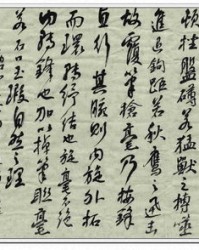 頓挫盤礴若猛獸之搏噬
進退鉤距若秋鷹之迅擊
故覆筆搶毫乃按鋒
直行其腕則内旋外拓
而環轉紓結也旋毫不絶
内轉鋒也加以掉筆聯毫
若石璺玉瑕自然之理